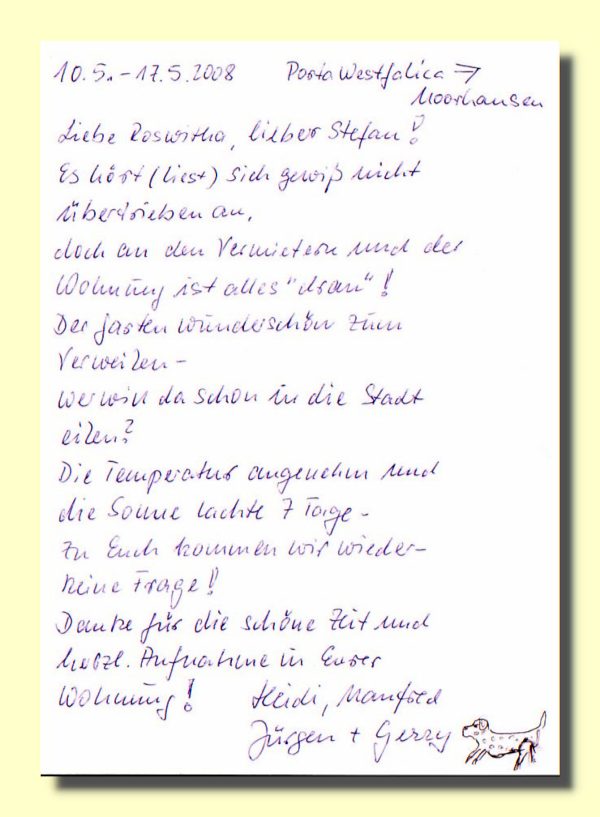 10.5. - 17.5.2008 Porta Westfalica →
Moorhausen
Liebe Roswitha, lieber Stefan!
Es hört (liest) sich gewiß nicht
übertrieben an,
doch an den Vermietern und der
Wohnung ist alles "dran"!
Der Garten wunderschön zum
Verweilen -
wer will da schon in die Stadt
eilen?
Die Temperatur angenehm und
die Sonne lachte 7 Tage -
zu Euch kommen wir wieder -
keine Frage!
Danke für die schöne Zeit und
herzl. Aufnahme in Eurer
Wohnung! Heidi, Manfred
Jürgen + Gerry